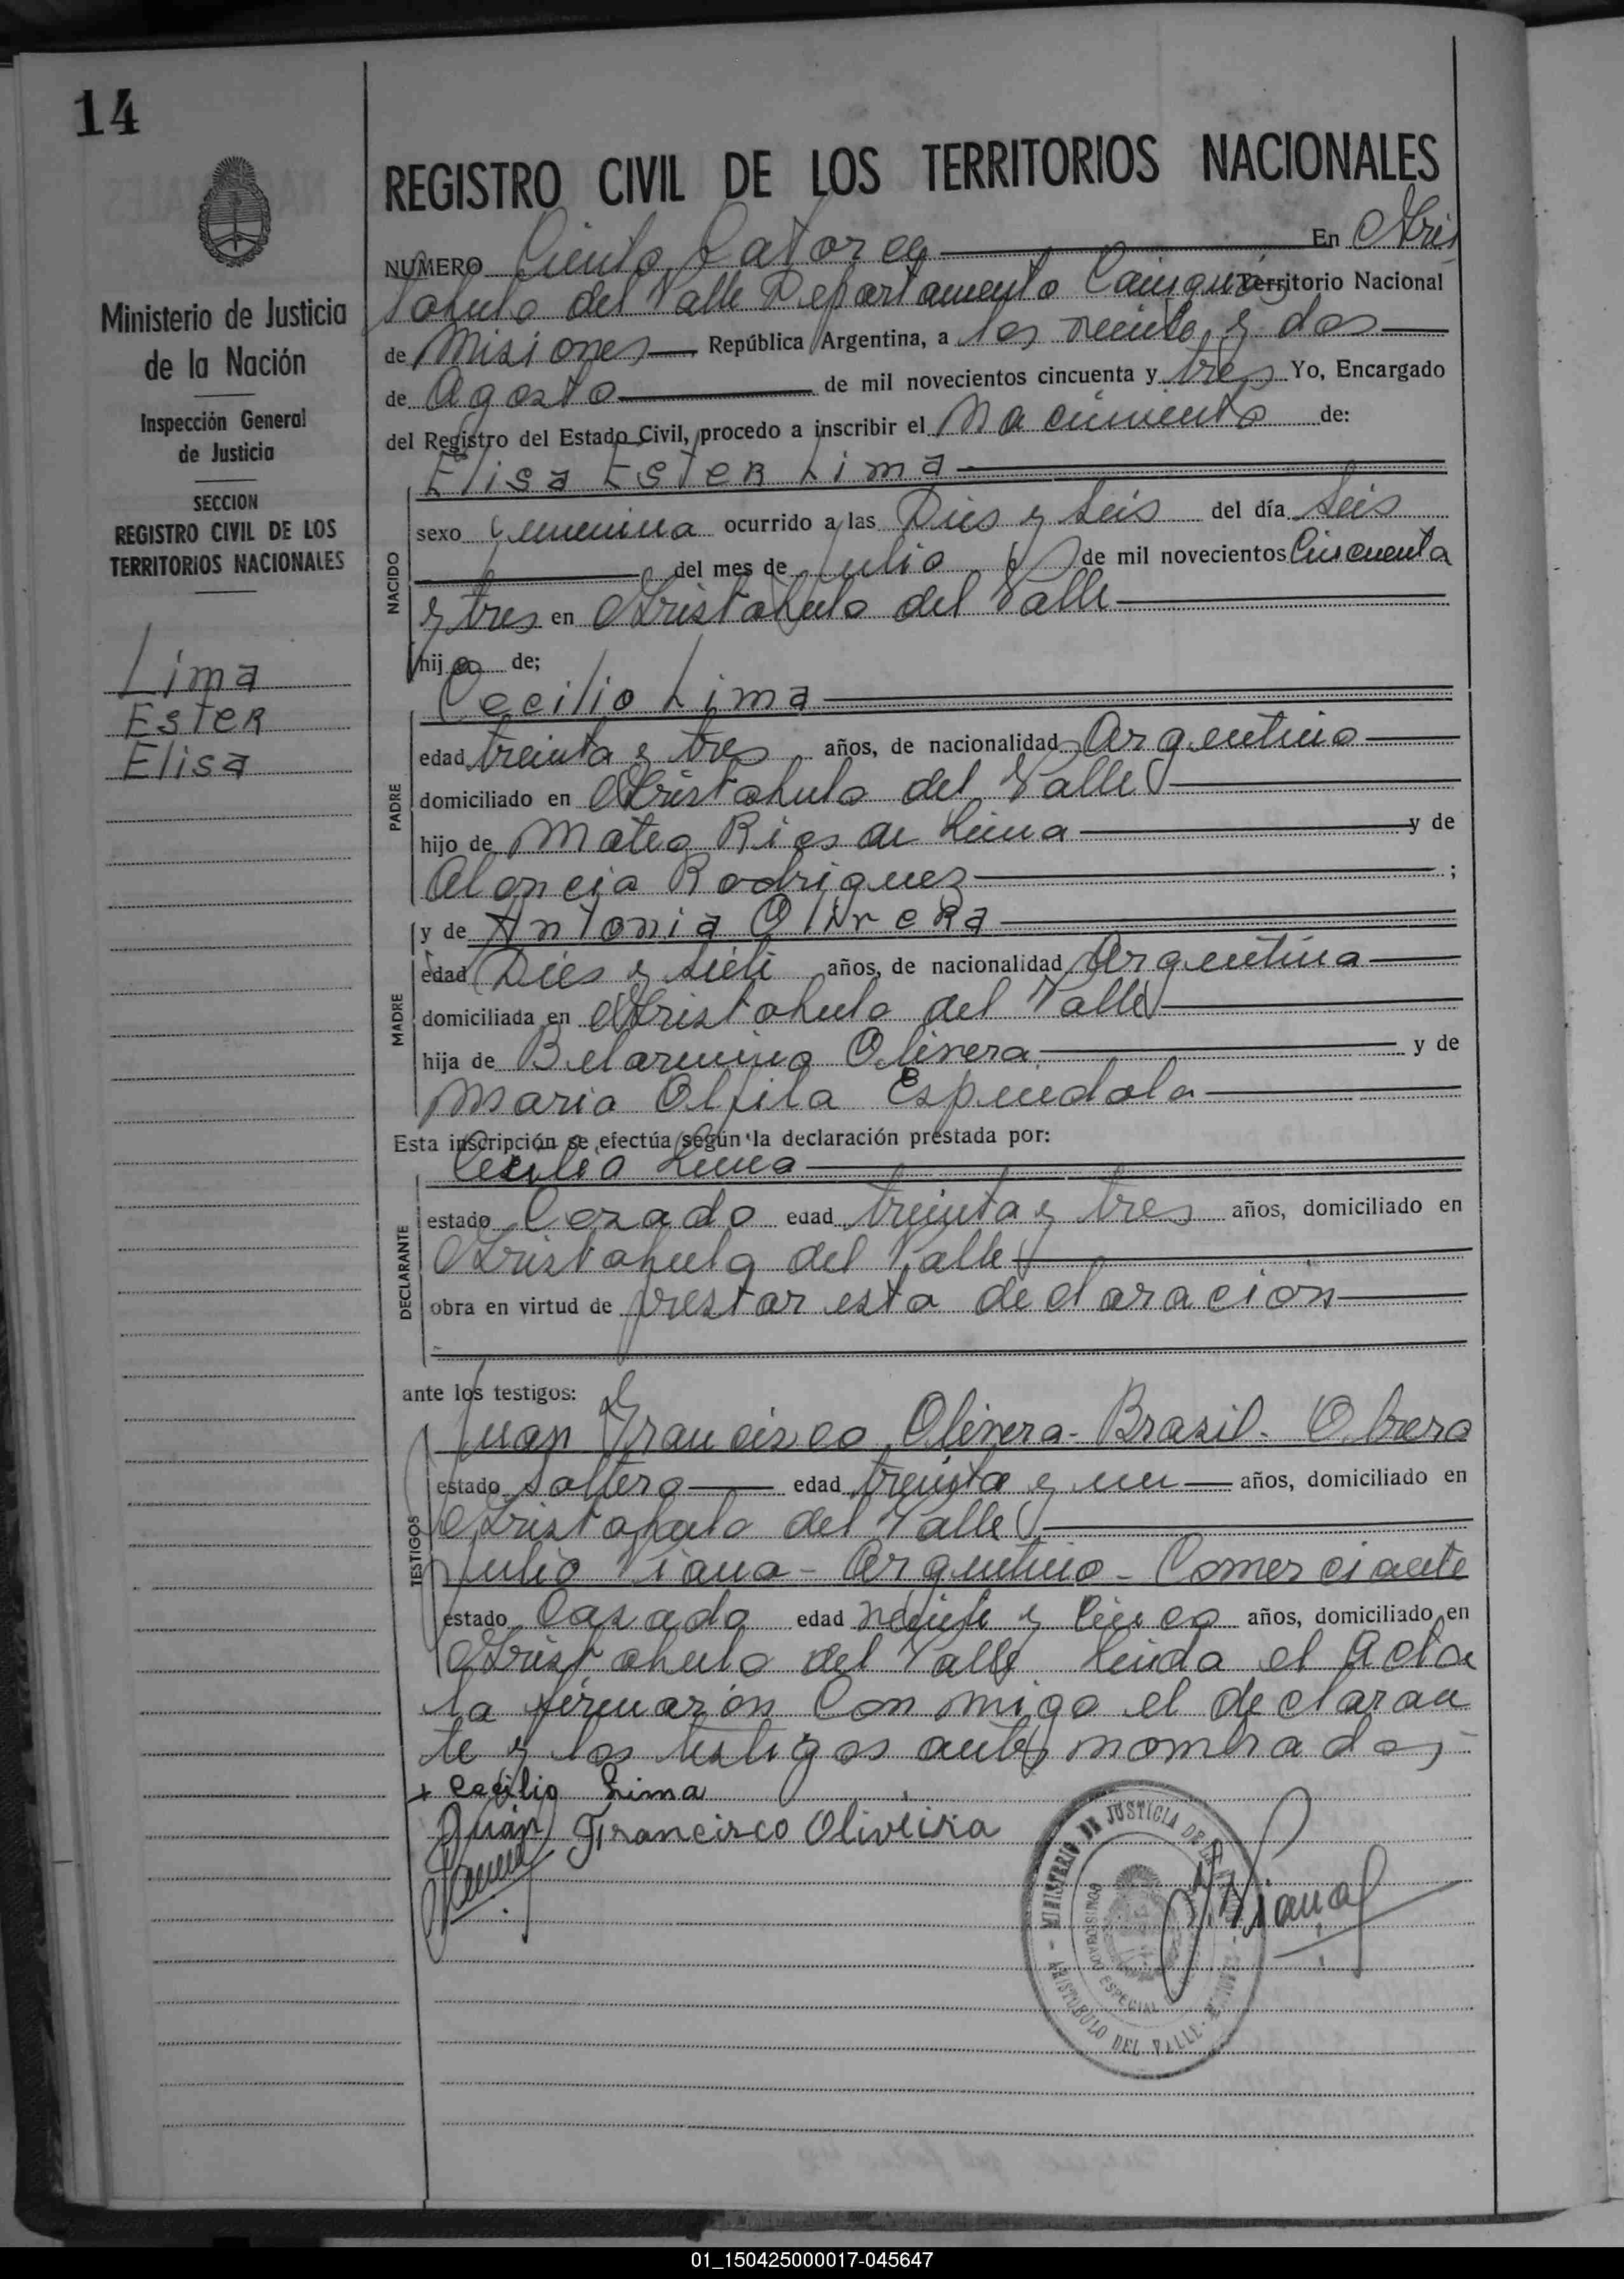 14
Ministerio de Justicia
de la Nación
Inspección General
de Justicia
SECCION
REGISTRO CIVIL DE LOS
TERRITORIOS NACIONALES
Lima
Ester
Elisa
REGISTRO CIVIL DE LOS TERRITORIOS NACIONALES
NUMERO Ciento Catorce En Aris
tobulo del Valle Departamento Cainguás Territorio Nacional
de Misiones República Argentina, a los veinte y dos
de Agosto de mil novecientos cincuenta y tres Yo, Encargado
del Registro del Estado Civil, procedo a inscribir el Nacimiento de:
Elisa Ester Lima
NACIDO
sexo femenina ocurrido a las Dies y Seis del día Seis
del mes de Julio de mil novecientos Cincuenta
y tres en Aristobulo del Valle
hija de;
Cecilio Lima
PADRE
edad treinta y tres años, de nacionalidad Argentino
domiciliado en Aristobulo del Valle
hijo de Mateo Rios de Lima y de
Rodriguez ;
y de Antonia Olivera
MADRE
edad Dies y Siete años, de nacionalidad Argentina
domiciliada en Aristobulo del Valle
hija de Belarmino Olivera y de
Maria Espindola
Esta inscripción se efectúa según la declaración prestada por:
Cecilio Lima
DECLARANTE
estado Cazado edad treinta y tres años, domiciliado en
Aristobulo del Valle
obra en virtud de prestar esta declaración
ante los testigos:
TESTIGOS
Juan Francisco Olivera - Brasil - Obrero
estado Soltero edad treinta y un años, domiciliado en
Aristobulo del Valle
Julio Viana - Argentino - Comerciante
estado Cazado edad veinte y Cinco años, domiciliado en
Aristobulo del Valle leida el Acta
la firmarón Con migo el declaran
te y los testigos antes nombrados
+ Cecilio Lima
Juan Francisco Oliveira
Viana
MINISTERIO DE JUSTICIA DE LA
ESPECIAL
ARISTOBULO DEL VALLE
01_150425000017-045647